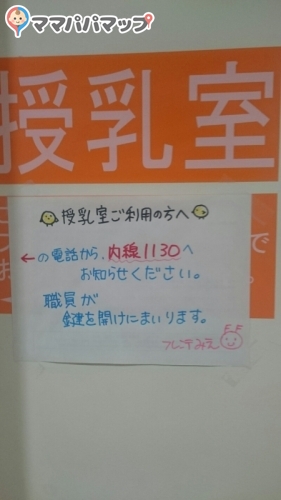 ママパパマップ
授乳室
授乳室ご利用の方へ
←の電話から、内線1130へ
お知らせください。
職員が
鍵を開けにまいります。
フレンテみえ